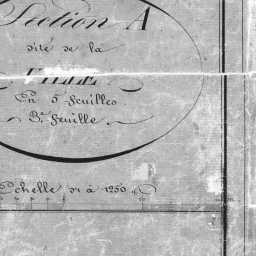 Section A
dite de la
VILLE
En 5 feuilles
3e. feuille
Echelle de 1 à 1250